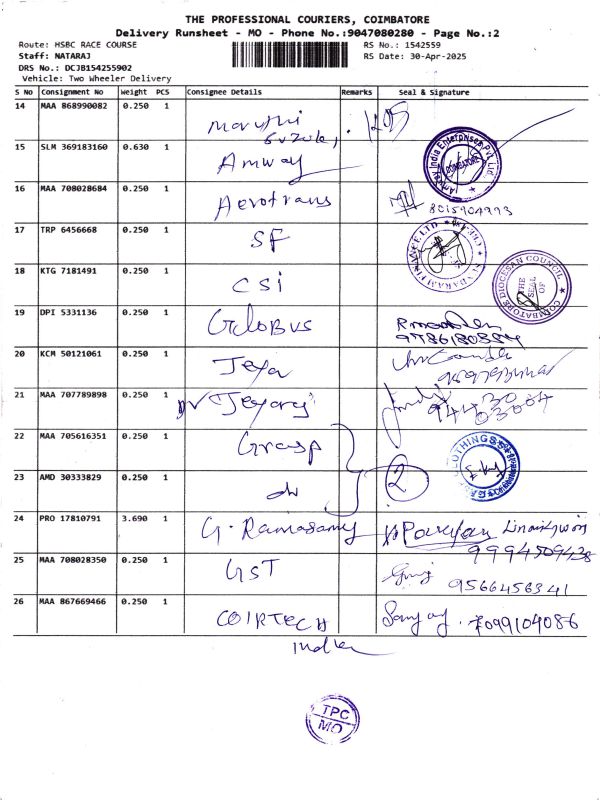 THE PROFESSIONAL COURIERS, COIMBATORE
Delivery Runsheet - MO - Phone No.:9047080280 - Page No.:2
Route: HSBC RACE COURSE
RS No.: 1542559
Staff: NATARAJ
RS Date: 30-Apr-2025
DRS No.: DCJB154255902
Vehicle: Two Wheeler Delivery
S No Consignment No Weight PCS Consignee Details Remarks Seal & Signature
14 MAA 868990082 0.250 1 Maruthi
Suzuki,
15 SLM 369183160 0.630 1 Amway
Amway India Enterprises Pvt. Ltd.
COIMBATORE
16 MAA 708028684 0.250 1 Aerotrans
8015904993
17 TRP 6456668 0.250 1 SF
18 KTG 7181491 0.250 1 CSI
COIMBATORE DIOCESAN COUNCIL
THE SEAL OF
19 DPI 5331136 0.250 1 Globus
9786180884
20 KCM 50121061 0.250 1 Jeya
21 MAA 707789898 0.250 1 Dr Jeyaraj
94430
03004
22 MAA 705616351 0.250 1 Grasp
CLOTHINGS
23 AMD 30333829 0.250 1 do
2
24 PRO 17810791 3.690 1 G. Ramasamy
9994509438
25 MAA 708028350 0.250 1 GST
9566456341
26 MAA 867669466 0.250 1 COIRTECH Sanjay. 7099104086
India
TPC
MO